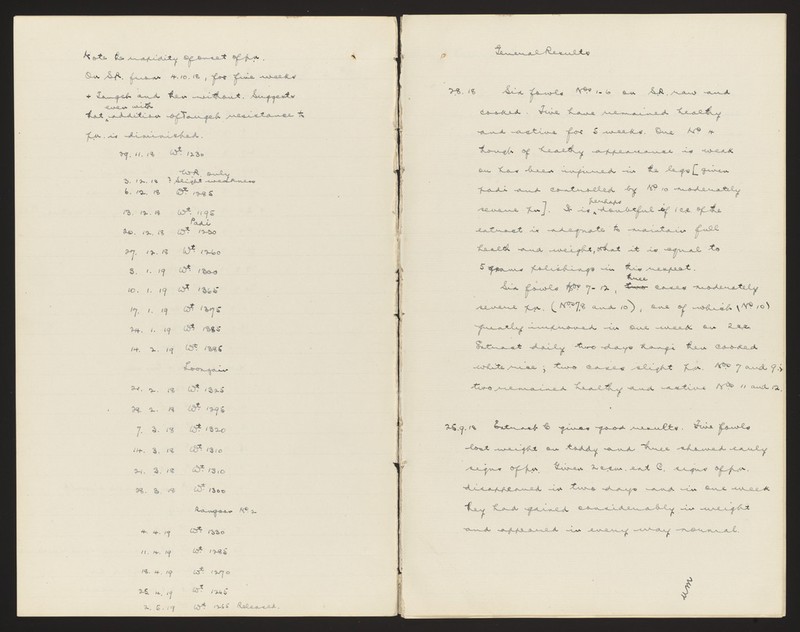 Note the rapidity of onset of p.n.
On S.R. from 4.10.18, for five weeks
+ Tempeh and then without. Suggests
even with
that addition of Tempeh resistance to
p.n. is diminished.
29. 11. 18 Wt. 1230
W.R. only
3. 12. 18 ? Slight weakness
6. 12. 18 Wt 1245
13. 12. 18 Wt. 1195
Padi
20. 12. 18 Wt. 1200
27. 12. 18 Wt 1260
3. 1. 19 Wt. 1300
10. 1. 19 Wt 1365
17. 1. 19 Wt 1375
24. 1. 19 Wt 1385
14. 2. 19 Wt 1385
Loongain
21. 2. 18 Wt. 1325
28. 2. 18 Wt. 1295
7. 3. 18 Wt. 1320
14. 3. 18 Wt. 1310
21. 3. 18 Wt 1310
28. 3. 18 Wt 1300
Rangoon No 2
4. 4. 19 Wt 1330
11. 4. 19 Wt 1285
18. 4. 19 Wt 1270
25. 4. 19 Wt 1265
2. 5. 19 Wt 1265 Released.
General Results
Six fowls Nos 1-6 on S.R. raw and
cooked. Five have remained healthy
and active for 5 weeks. One No 4
though of healthy appearance is weak
or has been injured in the legs [given
padi and controlled by No 10 moderately
perhaps
severe p.n.]. It is doubtful if 1cc of the
extract is adequate to maintain full
health and weight, that it is equal to
5 grams polishings in this respect.
three
Six fowls Nos 7-12, two cases moderately
severe p.n. (Nos 8 and 10), one of which (No 10)
greatly improved in one week on 2cc
Extract daily two days Kangi then cooked
white rice; two cases slight p.n. Nos 7 and 9;
two remained healthy and active Nos 11 and 12.
25.9.18 Extract C gives good results. Five fowls
lost weight on toddy and three showed early
signs of p.n. Given 2 ccm. ext C. signs of p.n.
disappeared in two days and in one week
they had gained considerably in weight
and appeared in every way normal